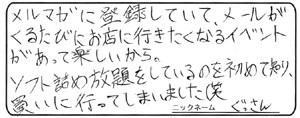 メルマガに登録していて、メールが
くるたびにお店に行きたくなるイベント
があって楽しいから。
ソフト詰め放題をしているのを初めて知り、
買いに行ってしまいました(笑
ニックネーム ぐっさん